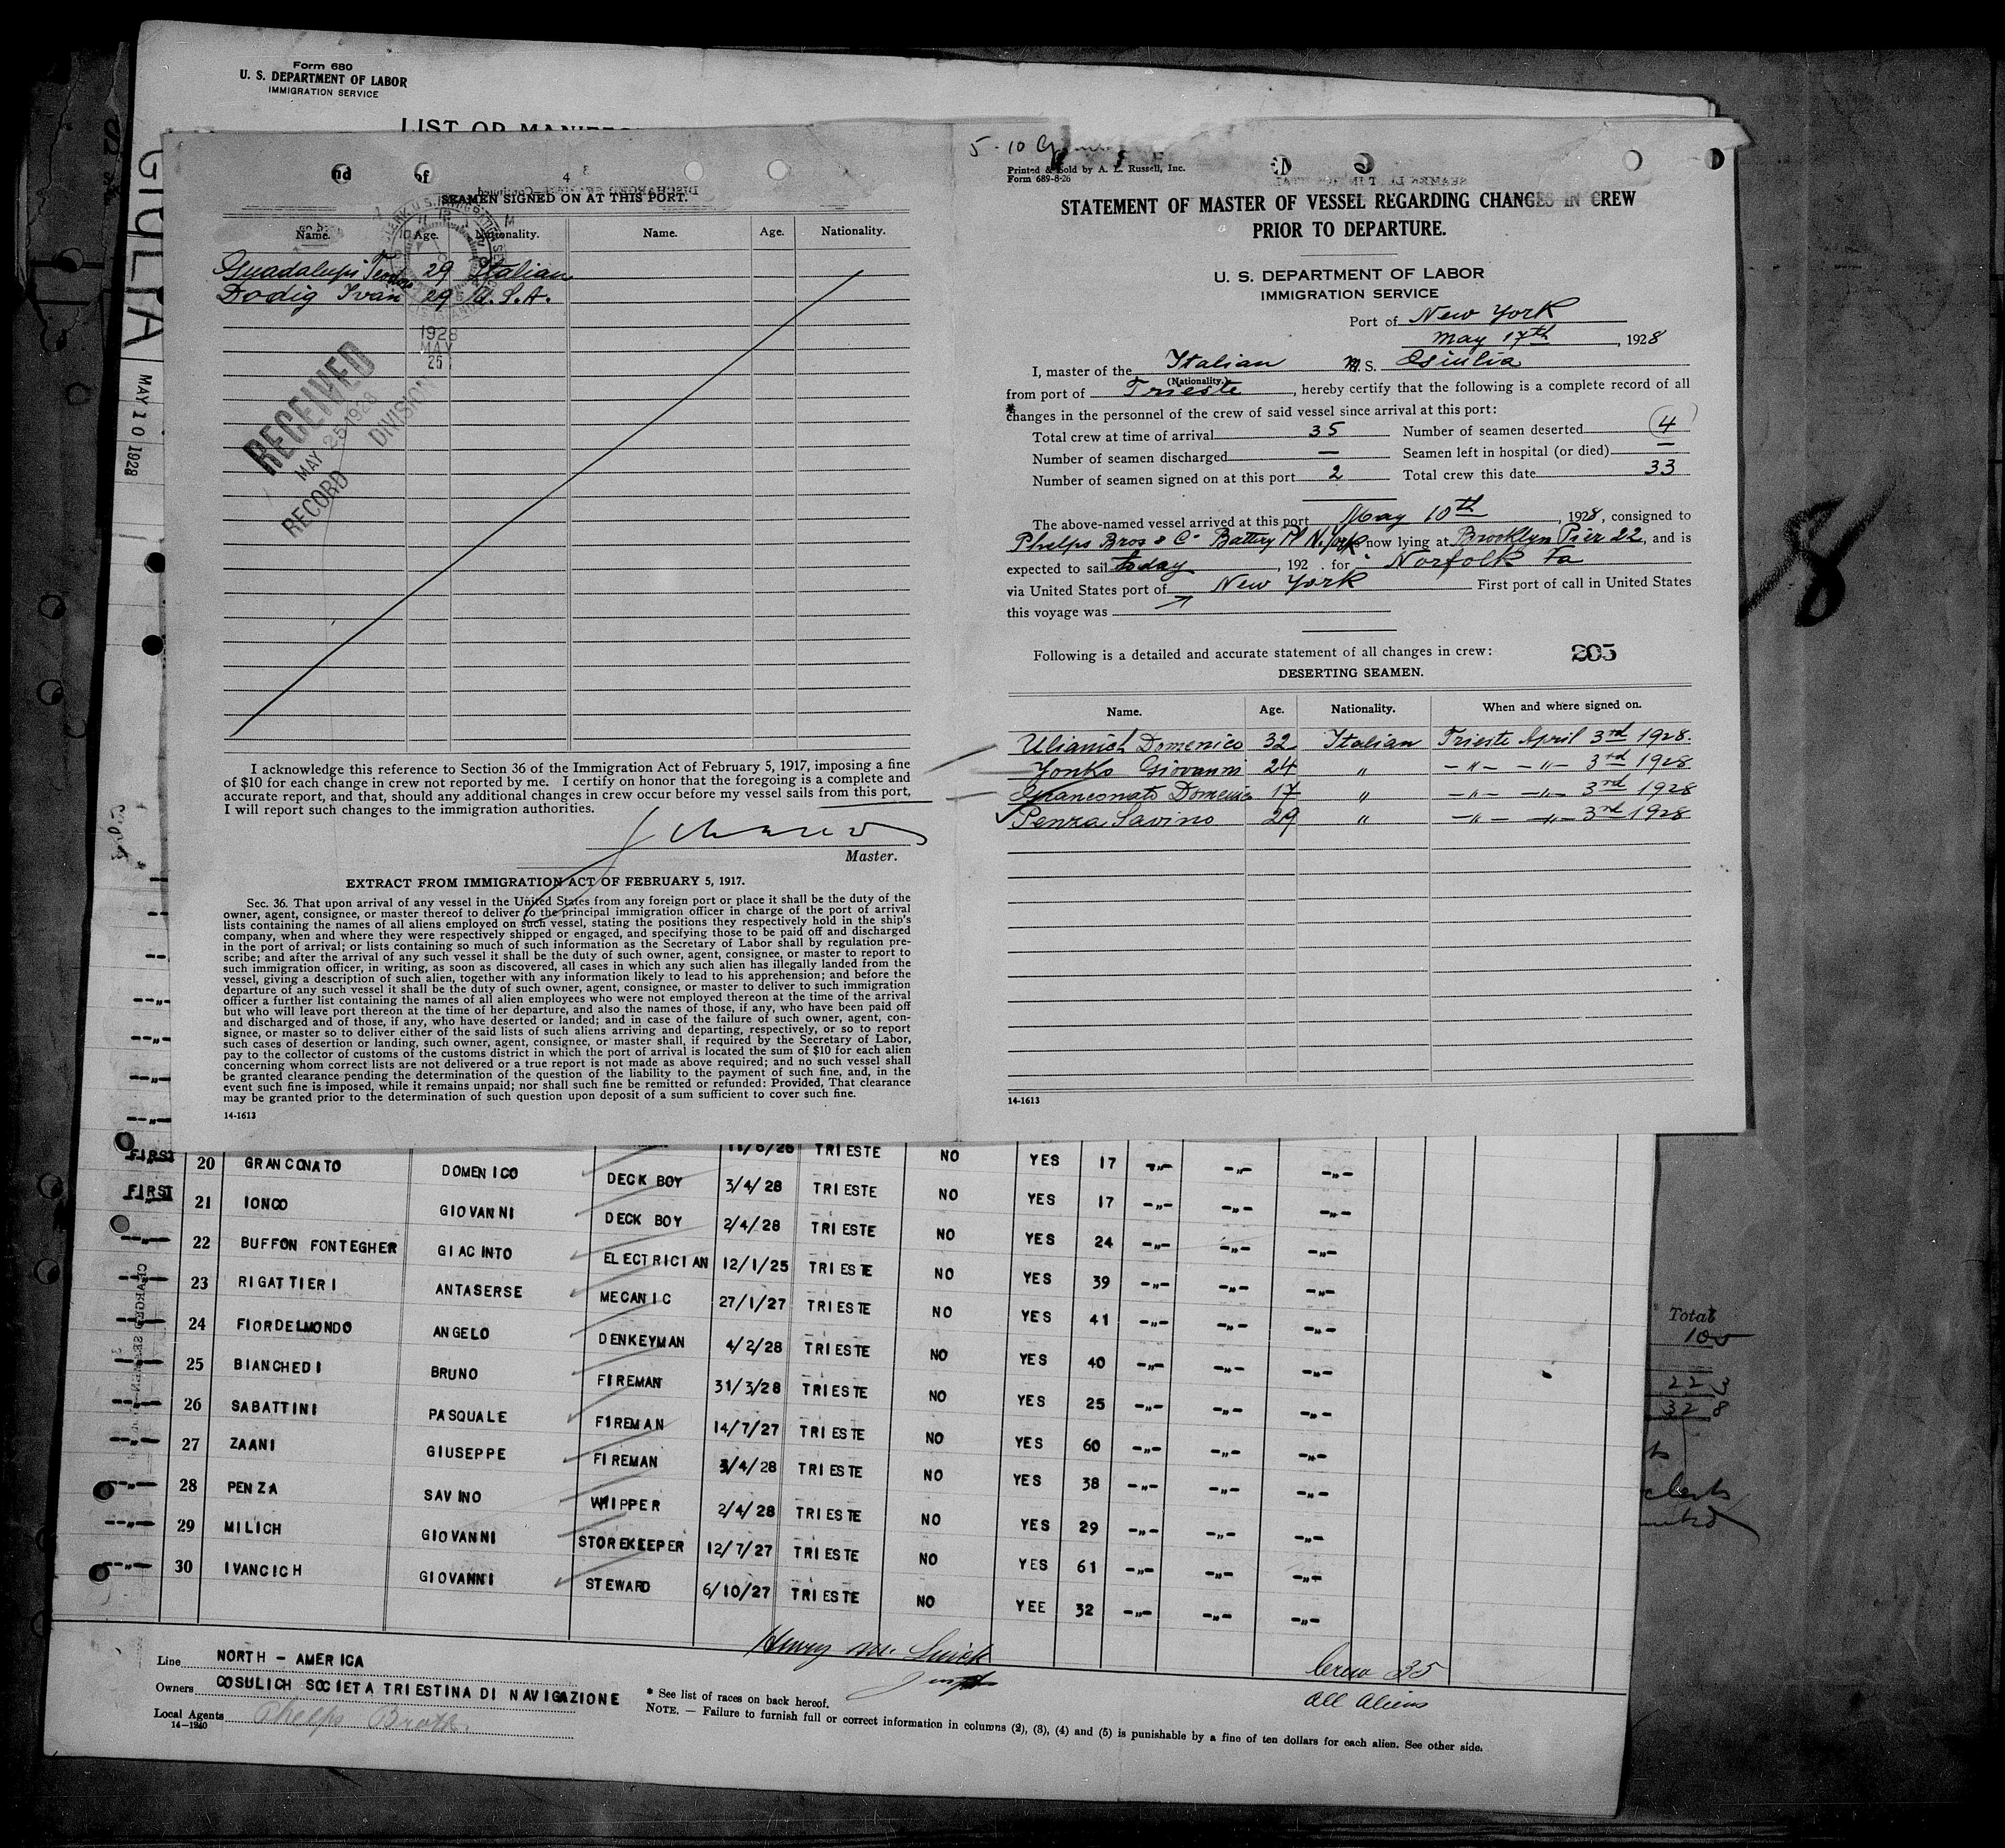 Form 680
U. S. DEPARTMENT OF LABOR
IMMIGRATION SERVICE
LIST OR MANIFEST
GIULIA
MAY 10 1928
SEAMEN SIGNED ON AT THIS PORT.
Name. Age. Nationality. Name. Age. Nationality.
Guadalupi 29 Italian
Dodig Ivan 29 U.S.A.
1928
MAY
25
RECEIVED
MAY 25 1928
RECORD DIVISION
I acknowledge this reference to Section 36 of the Immigration Act of February 5, 1917, imposing a fine
of $10 for each change in crew not reported by me. I certify on honor that the foregoing is a complete and
accurate report, and that, should any additional changes in crew occur before my vessel sails from this port,
I will report such changes to the immigration authorities.
Master.
EXTRACT FROM IMMIGRATION ACT OF FEBRUARY 5, 1917.
Sec. 36. That upon arrival of any vessel in the United States from any foreign port or place it shall be the duty of the
owner, agent, consignee, or master thereof to deliver to the principal immigration officer in charge of the port of arrival
lists containing the names of all aliens employed on such vessel, stating the positions they respectively hold in the ship's
company, when and where they were respectively shipped or engaged, and specifying those to be paid off and discharged
in the port of arrival; or lists containing so much of such information as the Secretary of Labor shall by regulation pre-
scribe; and after the arrival of any such vessel it shall be the duty of such owner, agent, consignee, or master to report to
such immigration officer, in writing, as soon as discovered, all cases in which any such alien has illegally landed from the
vessel, giving a description of such alien, together with any information likely to lead to his apprehension; and before the
departure of any such vessel it shall be the duty of such owner, agent, consignee, or master to deliver to such immigration
officer a further list containing the names of all alien employees who were not employed thereon at the time of the arrival
but who will leave port thereon at the time of her departure, and also the names of those, if any, who have been paid off
and discharged and of those, if any, who have deserted or landed; and in case of the failure of such owner, agent, con-
signee, or master so to deliver either of the said lists of such aliens arriving and departing, respectively, or so to report
such cases of desertion or landing, such owner, agent, consignee, or master shall, if required by the Secretary of Labor,
pay to the collector of customs of the customs district in which the port of arrival is located the sum of $10 for each alien
concerning whom correct lists are not delivered or a true report is not made as above required; and no such vessel shall
be granted clearance pending the determination of the question of the liability to the payment of such fine, and, in the
event such fine is imposed, while it remains unpaid; nor shall such fine be remitted or refunded: Provided, That clearance
may be granted prior to the determination of such question upon deposit of a sum sufficient to cover such fine.
14-1613
5-10
Printed & Sold by A. E. Russell, Inc.
Form 689-8-26
STATEMENT OF MASTER OF VESSEL REGARDING CHANGES IN CREW
PRIOR TO DEPARTURE.
U. S. DEPARTMENT OF LABOR
IMMIGRATION SERVICE
Port of New York
May 17th, 1928
I, master of the Italian M.S. Giulia
(Nationality.)
from port of Trieste, hereby certify that the following is a complete record of all
changes in the personnel of the crew of said vessel since arrival at this port:
Total crew at time of arrival 35 Number of seamen deserted 4
Number of seamen discharged — Seamen left in hospital (or died) —
Number of seamen signed on at this port 2 Total crew this date 33
The above-named vessel arrived at this port May 10th, 1928, consigned to
Phelps Bros & Co Battery Pl N. York now lying at Brooklyn Pier 22, and is
expected to sail today, 192 . for Norfolk Va
via United States port of New York First port of call in United States
this voyage was
Following is a detailed and accurate statement of all changes in crew: 205
DESERTING SEAMEN.
Name. Age. Nationality. When and where signed on.
Ulianich Domenico 32 Italian Trieste April 3rd 1928.
Yonko Giovanni 24 " -"- -"- 3rd 1928
Granconato Domenico 17 " -"- -"- 3rd 1928
Penza Savino 29 " -"- -"- 3rd 1928
14-1613
8
11/6/26 TRIESTE NO YES 17 -"- -"- -"-
FIRST 20 GRANCONATO DOMENICO DECK BOY 3/4/28 TRIESTE NO YES 17 -"- -"- -"-
FIRST 21 IONCO GIOVANNI DECK BOY 2/4/28 TRIESTE NO YES 24 -"- -"- -"-
-"- 22 BUFFON FONTEGHER GIACINTO ELECTRICIAN 12/1/25 TRIESTE NO YES 39 -"- -"- -"-
-"- 23 RIGATTIERI ANTASERSE MECANIC 27/1/27 TRIESTE NO YES 41 -"- -"- -"-
-"- 24 FIORDELMONDO ANGELO DENKEYMAN 4/2/28 TRIESTE NO YES 40 -"- -"- -"-
-"- 25 BIANCHEDI BRUNO FIREMAN 31/3/28 TRIESTE NO YES 25 -"- -"- -"-
-"- 26 SABATTINI PASQUALE FIREMAN 14/7/27 TRIESTE NO YES 60 -"- -"- -"-
-"- 27 ZAANI GIUSEPPE FIREMAN 3/4/28 TRIESTE NO YES 38 -"- -"- -"-
-"- 28 PENZA SAVINO WHIPPER 2/4/28 TRIESTE NO YES 29 -"- -"- -"-
-"- 29 MILICH GIOVANNI STOREKEEPER 12/7/27 TRIESTE NO YES 61 -"- -"- -"-
-"- 30 IVANCICH GIOVANNI STEWARD 6/10/27 TRIESTE NO YEE 32 -"- -"- -"-
Total
105
22 3
32 8
Line NORTH - AMERICA
Owners COSULICH SOCIETA TRIESTINA DI NAVIGAZIONE
Local Agents Phelps Broth.
14-1240
Henry
Crew 35
All Aliens
* See list of races on back hereof.
NOTE. — Failure to furnish full or correct information in columns (2), (3), (4) and (5) is punishable by a fine of ten dollars for each alien. See other side.